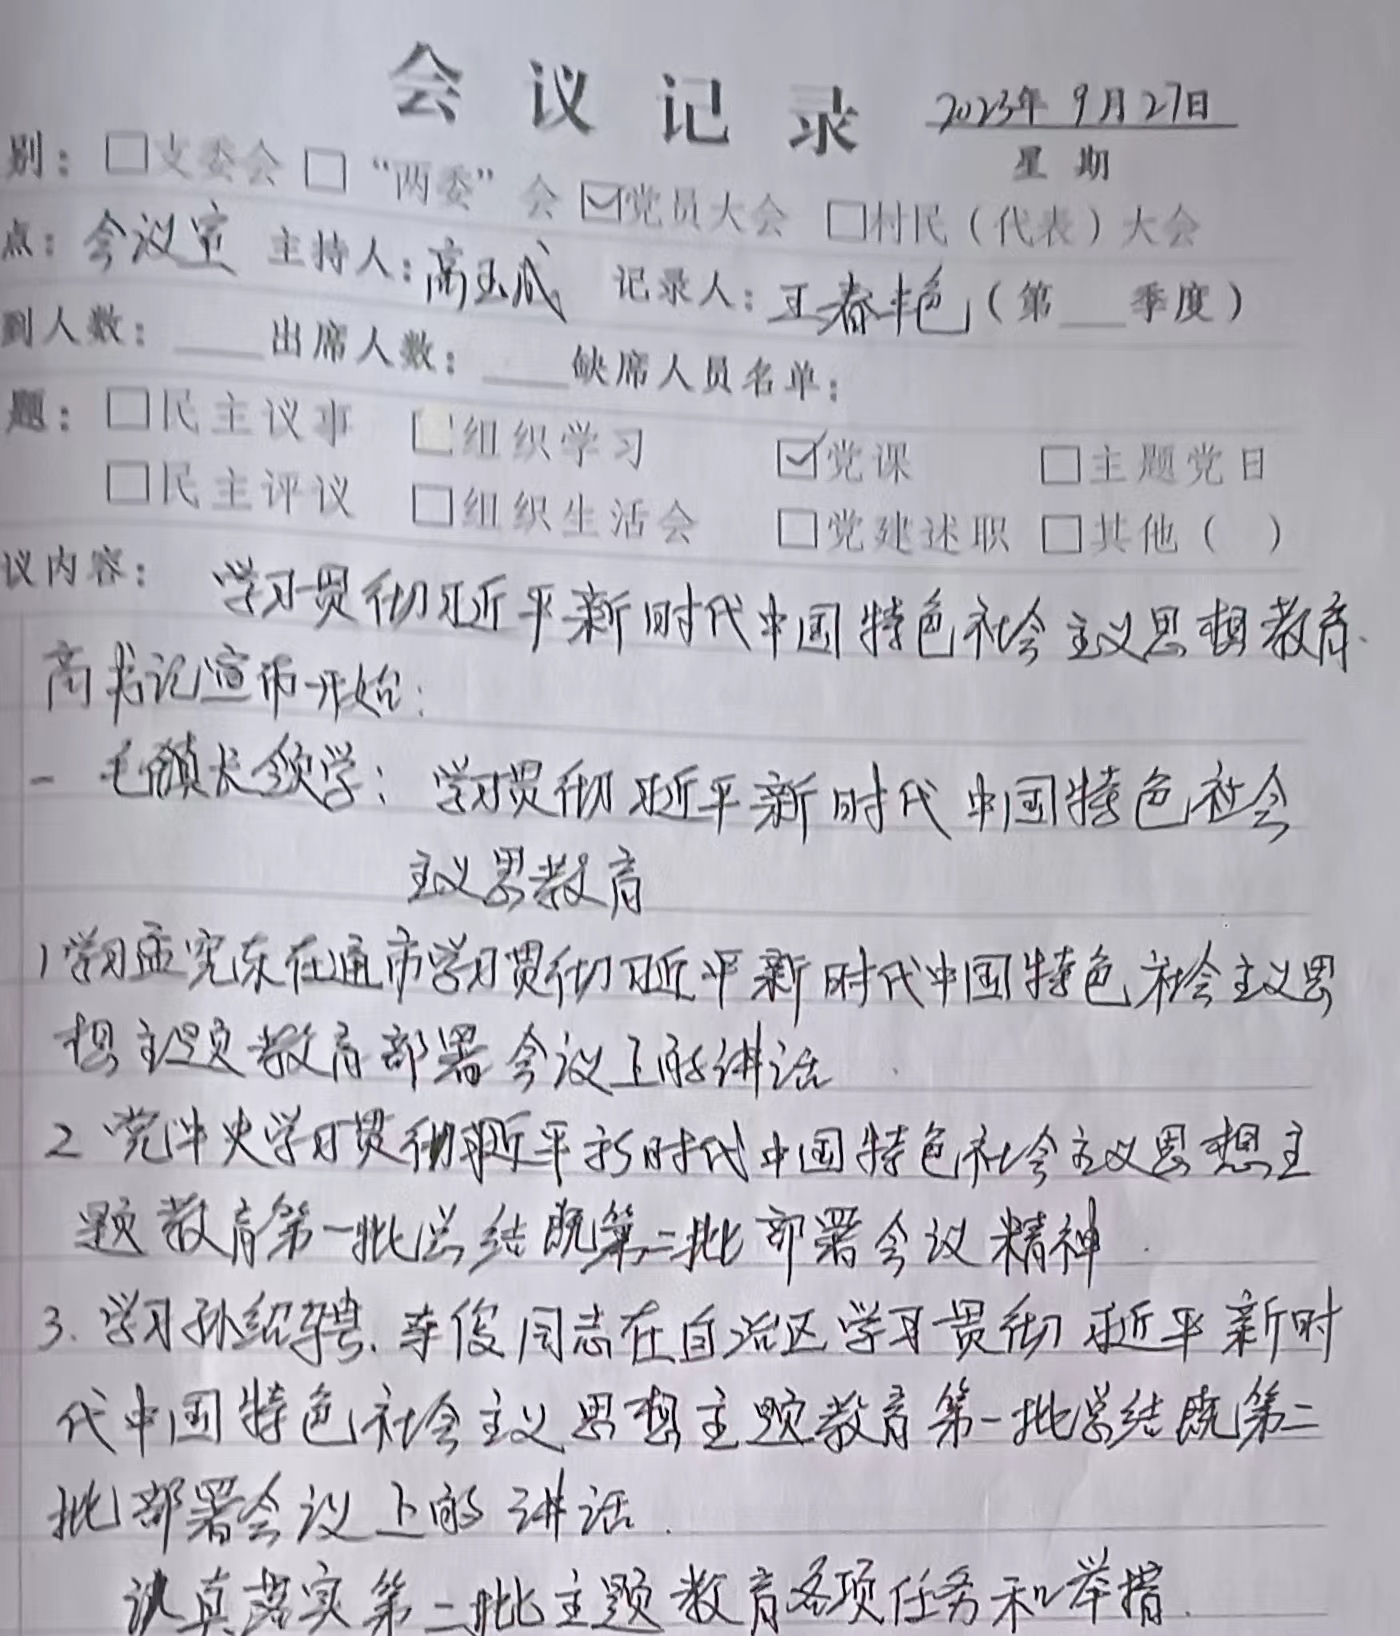 会议记录 2023年9月27日
星期
别：□支委会 □“两委”会 ☑党员大会 □村民（代表）大会
点：会议室 主持人：高玉成 记录人：王春艳（第___季度）
到人数：____出席人数：____缺席人员名单：
题：□民主议事 □组织学习 ☑党课 □主题党日
□民主评议 □组织生活会 □党建述职 □其他（ ）
议内容： 学习贯彻习近平新时代中国特色社会主义思想教育.
高书记宣布开始：
一 毛镇长领学：学习贯彻习近平新时代中国特色社会
主义思教育
1学习孟宪东在通市学习贯彻习近平新时代中国特色社会主义思
想主题教育部署会议上的讲话
2 党中央学习贯彻习近平新时代中国特色社会主义思想主
题教育第一批总结既第二批部署会议精神.
3.学习孙绍骋、李俊同志在自治区学习贯彻习近平新时
代中国特色社会主义思想主题教育第一批总结既第二
批部署会议上的讲话.
认真落实第二批主题教育各项任务和举措.